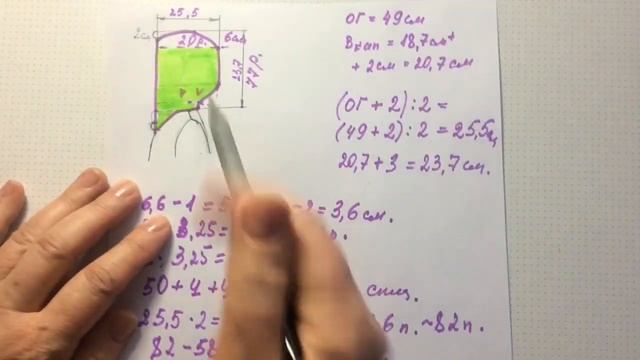 25,5
2см
20р.
6см
23,7
77р.
ОГ = 49см
Вкап = 18,7см +
+ 2см = 20,7см
(ОГ + 2) : 2 =
(49 + 2) : 2 = 25,5ц
20,7 + 3 = 23,7см.
6,6 - 1 = 5
2 = 3,6см.
3,25 =
3,25 =
50 + 4 + 4
спиц.
25,5 · 2 =
6п. ~ 82п.
82 - 58